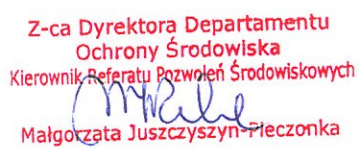 Z-ca Dyrektora Departamentu
Ochrony Środowiska
Kierownik Referatu Pozwoleń Środowiskowych
Małgorzata Juszczyszyn-Pieczonka